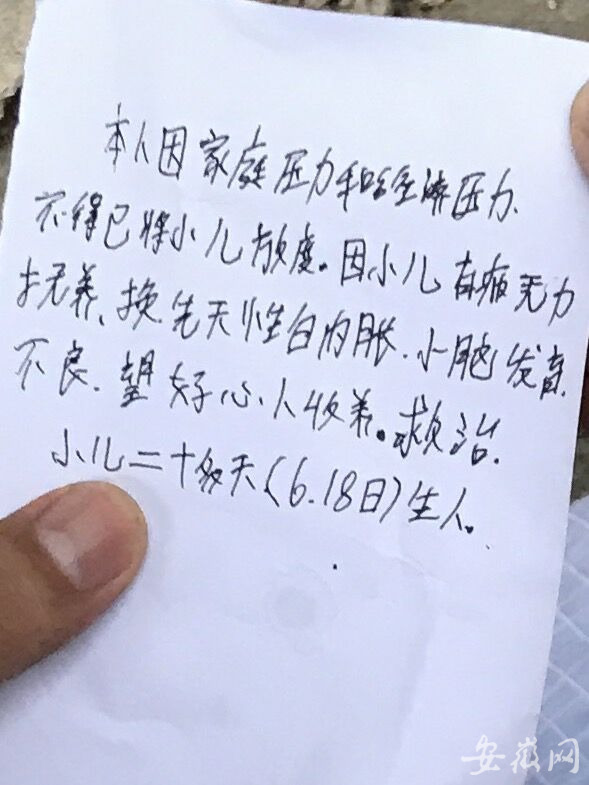 本人因家庭压力和经济压力、
不得已将小儿放度。因小儿有病无力
抚养、换先天性白内胀、小脑发育
不良、望好心人收养。救治.
小儿二十多天(6.18日)生人。
安徽网